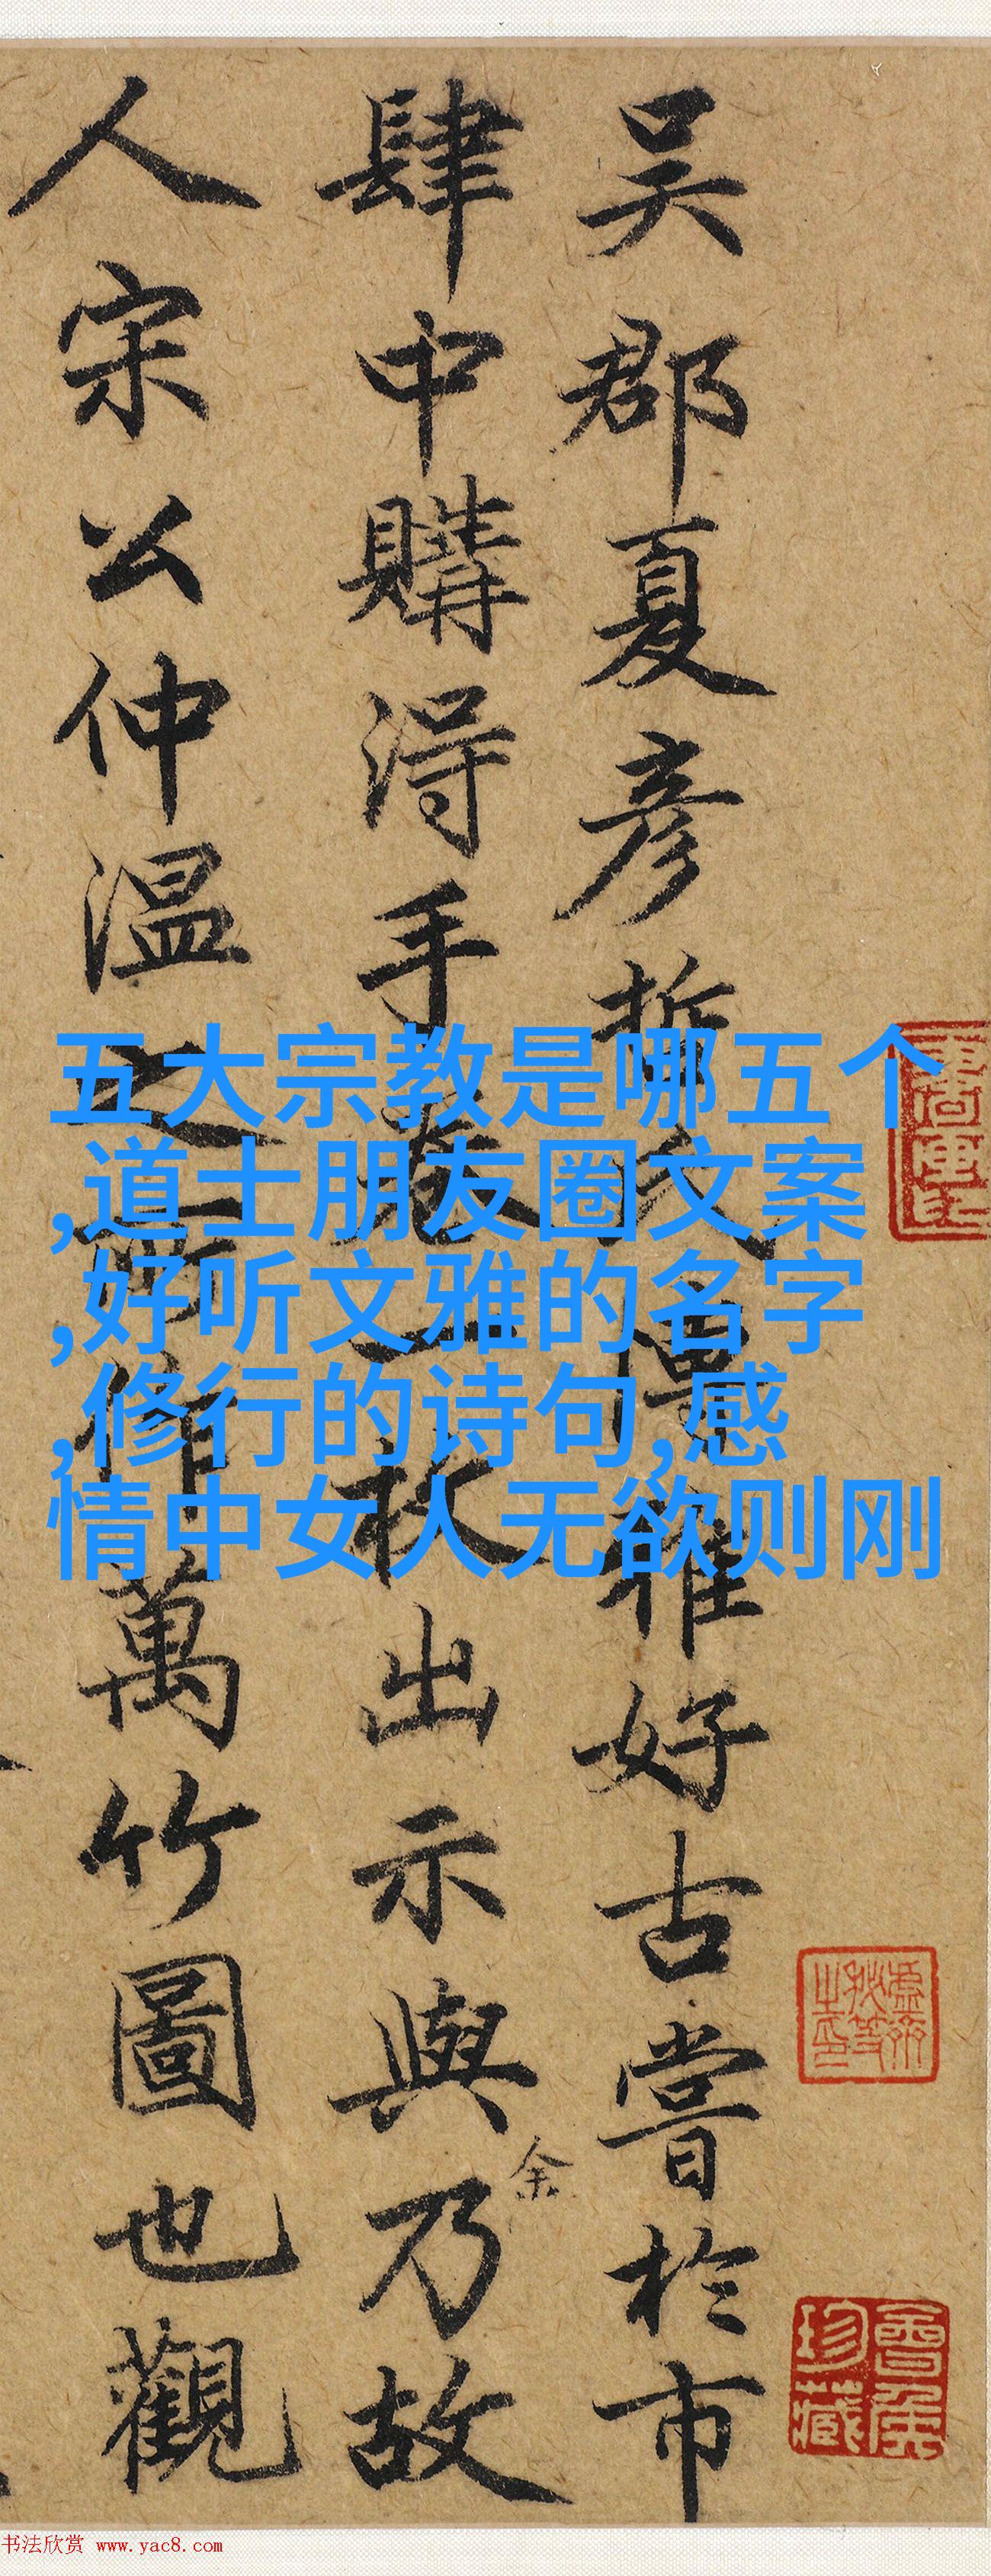 吴郡夏彦哲氏博雅好古嘗於市
肆中購淂手卷一出示與乃故
余
人宋公仲温之所作萬竹圖也觀
五大宗教是哪五个
,道士朋友圈文案
,好听文雅的名字
,修行的诗句,感
情中女人无欲则刚
珍藏
书法欣赏 www.yac8.com